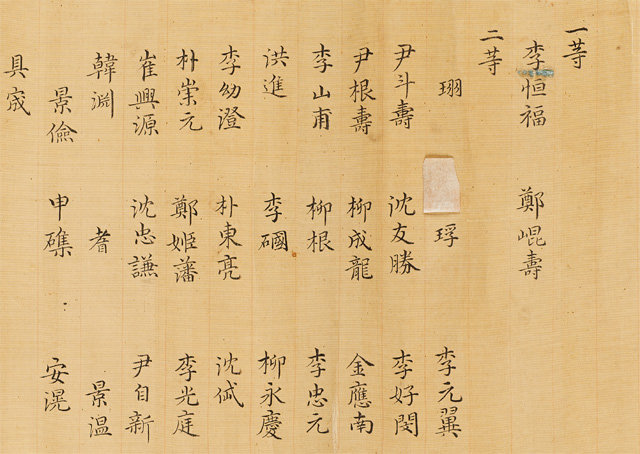 一等
李恒福 鄭崐壽
二等
珝 琈 李元翼
尹斗壽 沈友勝 李好閔
尹根壽 柳成龍 金應南
李山甫 柳根 李忠元
洪進 李𥕏 柳永慶
李幼澄 朴東亮 沈岱
朴崇元 鄭姬藩 李光庭
崔興源 沈忠謙 尹自新
韓淵 耆 景溫
景儉 申磼 安滉
具宬